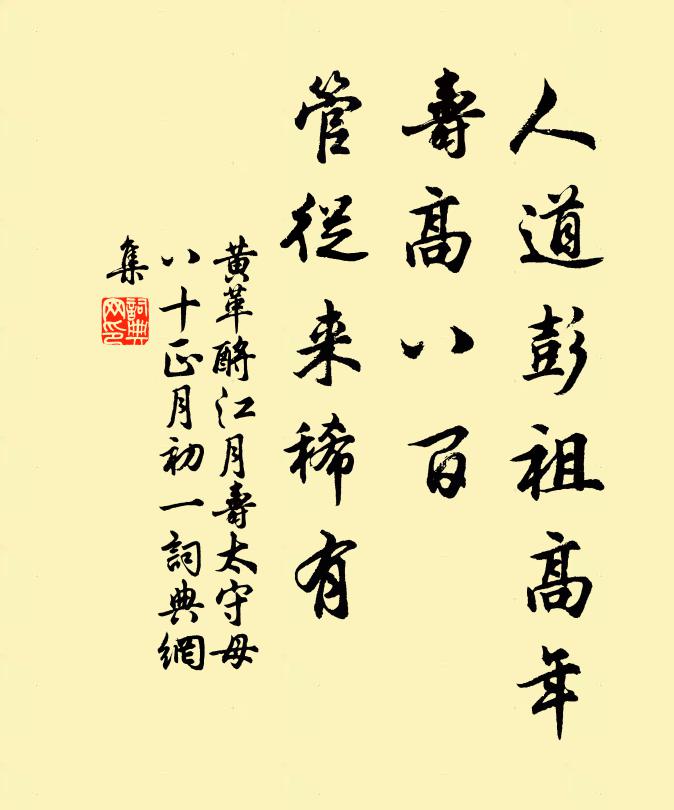 人道彭祖高年
壽高八百
管從来稀有
黄革酹江月壽太守母
八十正月初一詞典網
集
詞典
网印